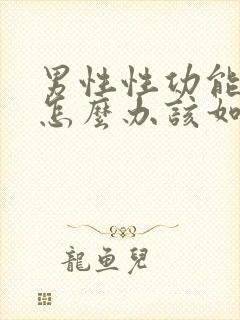 男性性功能
怎麼办該如
龍鱼兒